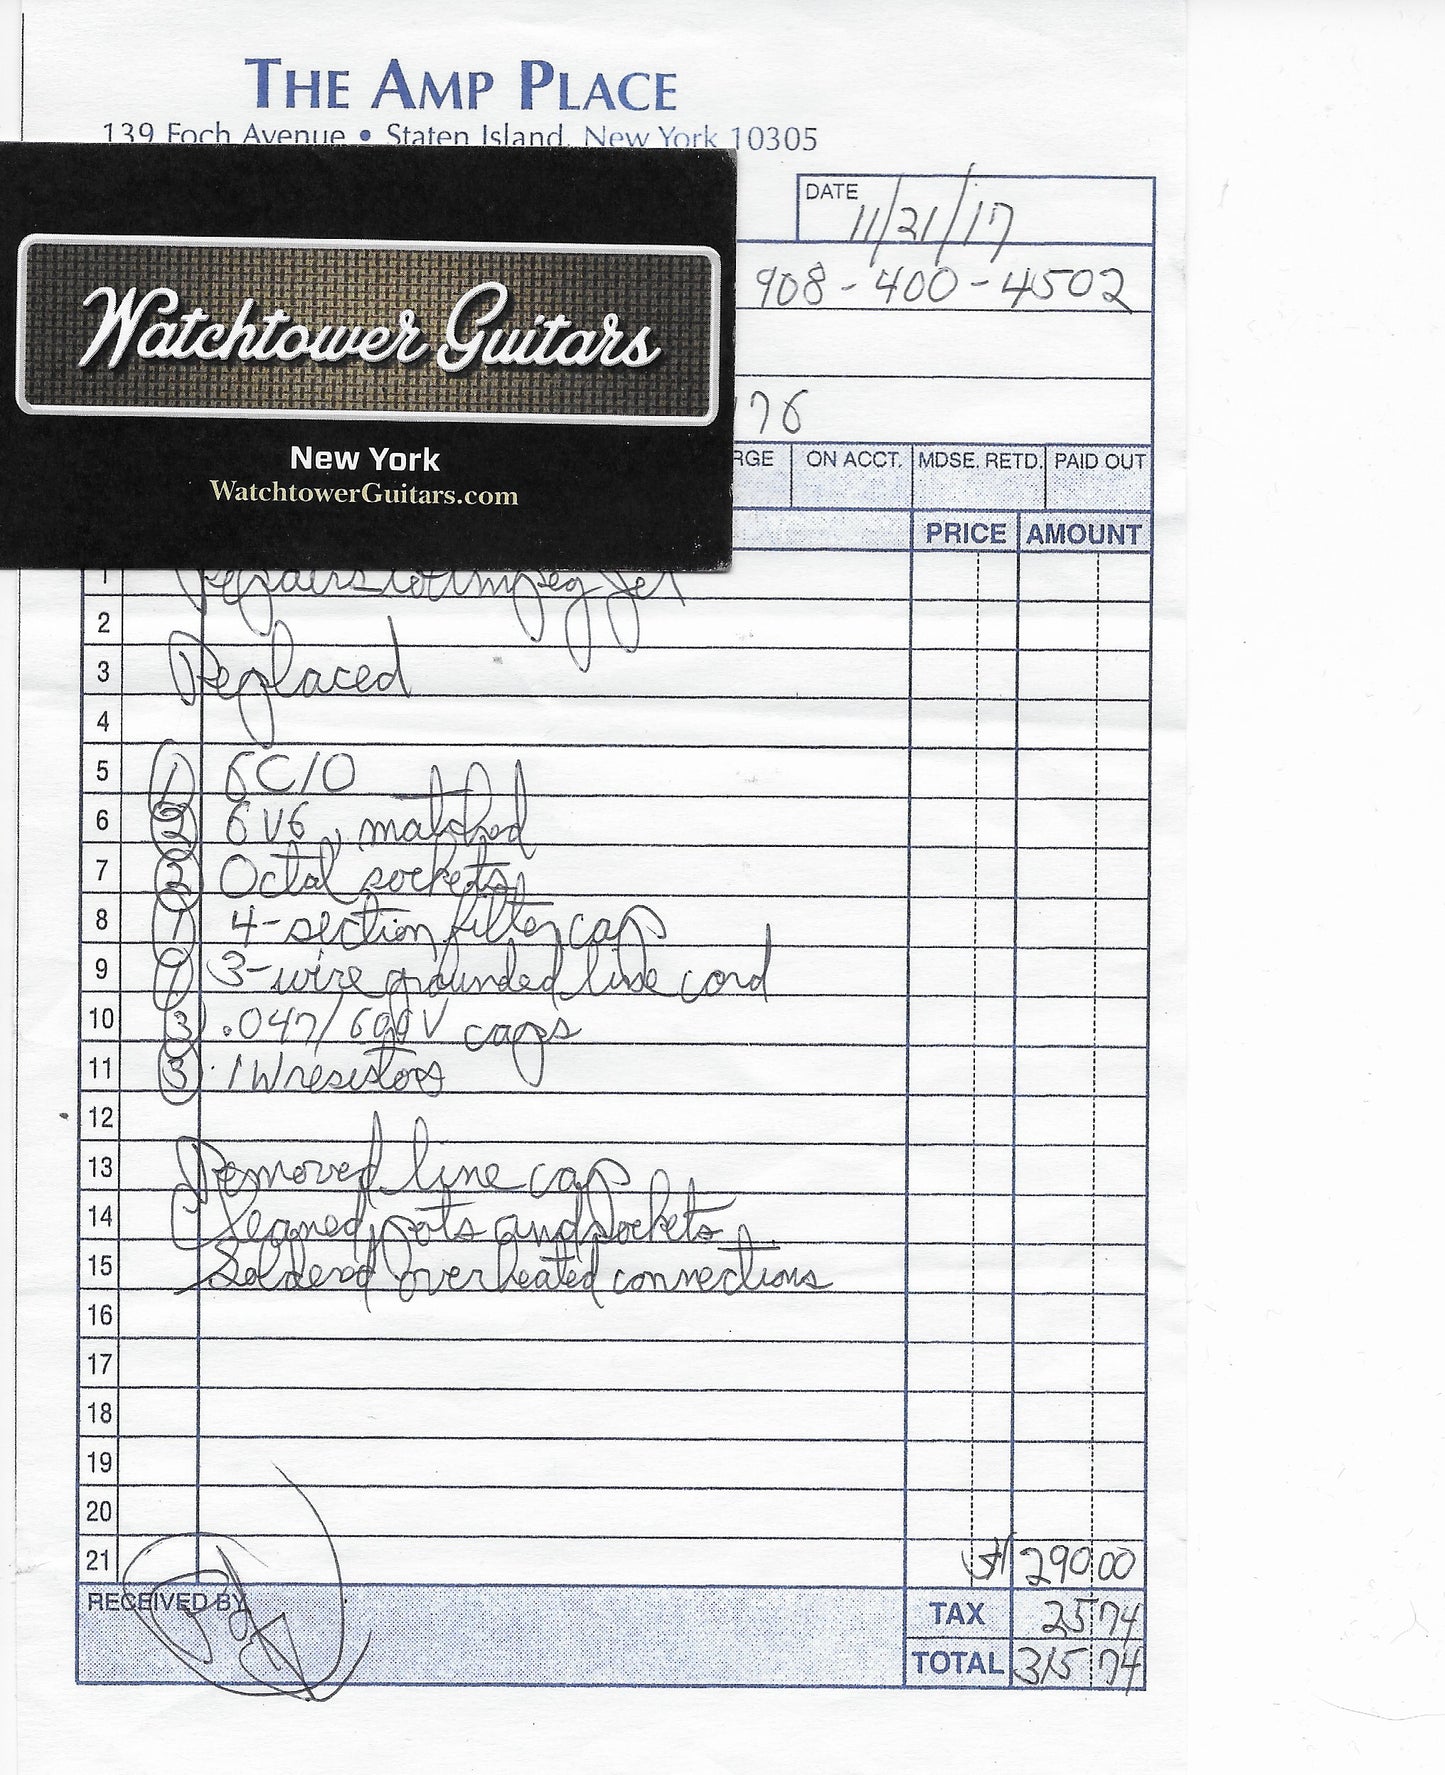 THE AMP PLACE
139 Foch Avenue • Staten Island, New York 10305
DATE 11/21/17
908-400-4502
Watchtower Guitars
New York
WatchtowerGuitars.com
76
RGE ON ACCT. MDSE. RETD. PAID OUT
PRICE AMOUNT
1 Repairs to Ampeg Jet
2
3 Replaced
4
5 1 6C10
6 2 6V6, matched
7 2 Octal sockets
8 1 4-section filter cap
9 1 3-wire grounded line cord
10 3 .047/600V caps
11 3 1W resistors
12
13 Removed line cap
14 Cleaned pots and sockets
15 Soldered overheated connections
16
17
18
19
20
21 $ 290 00
RECEIVED BY
TAX 25 74
TOTAL 315 74